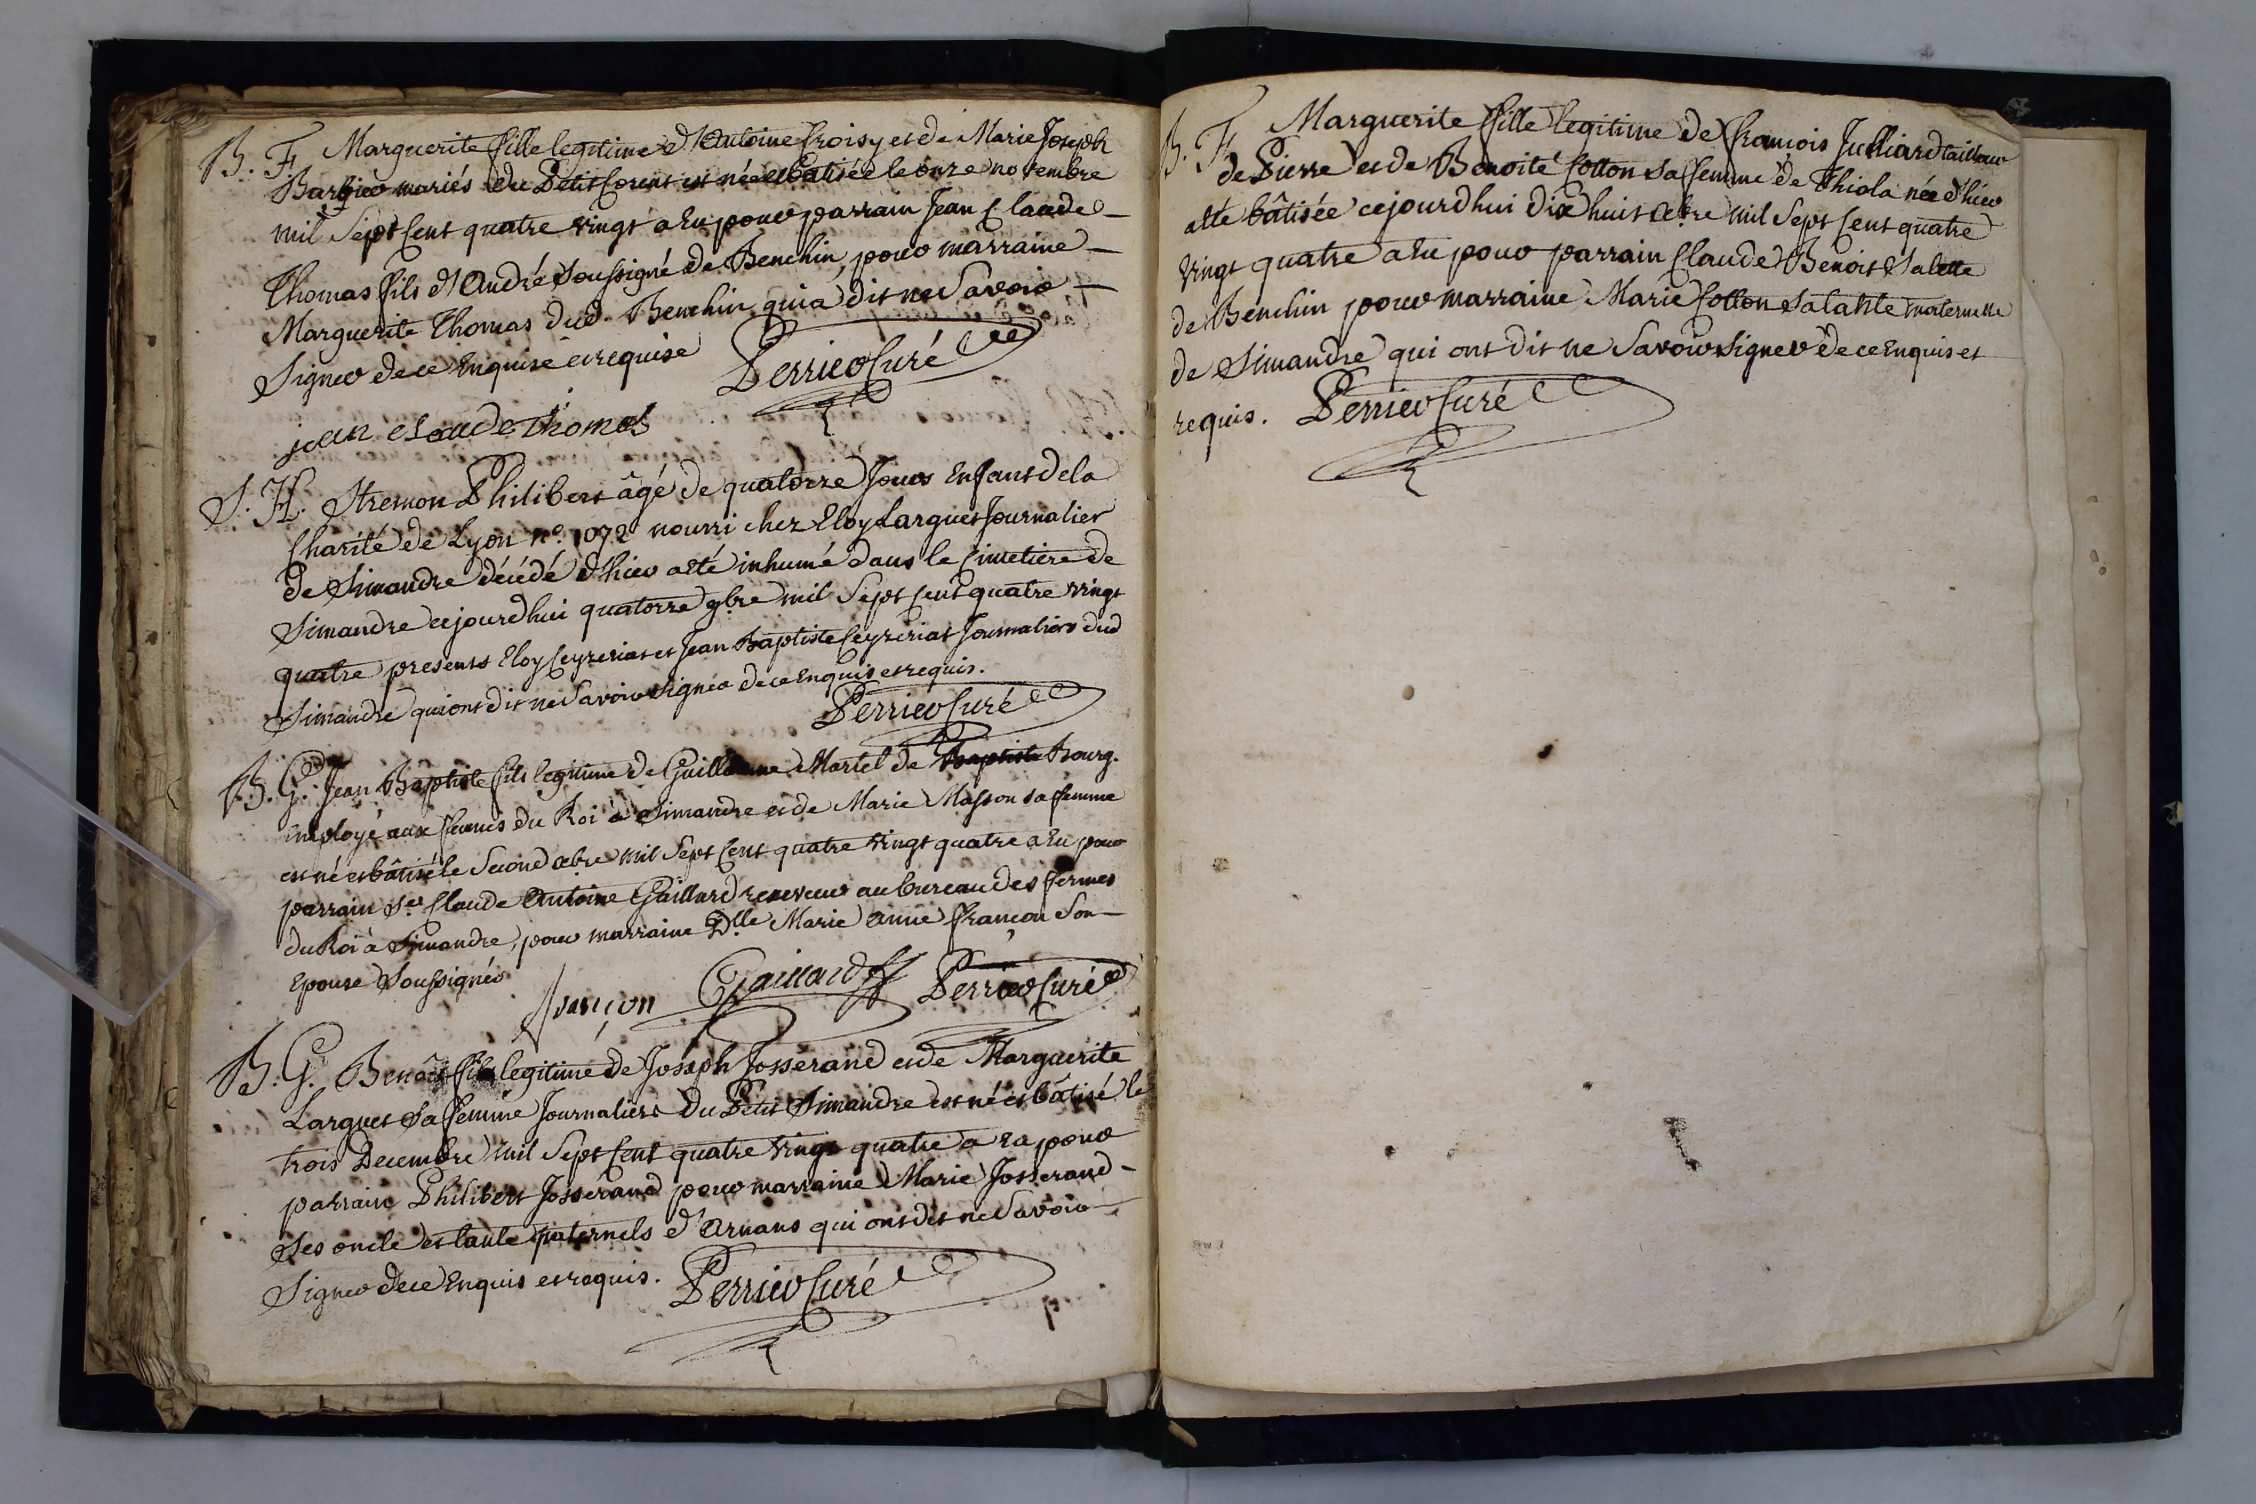 B. F. Marguerite fille legitime d'Antoine Croisy et de Marie Joseph
Barbier mariés du Petit Corent est née et batisée le onze novembre
mil Sept Cent quatre vingt a Eu pour parrain Jean Claude
Thomas fils d'André Soussigné de Benchin, pour marraine
Marguerite Thomas dud. Benchin qui a dit ne Savoir
Signer de ce Enquise et requise Perrier Curé
jean claude thomas
S. H. Stremon Philibert âgé de quatorze Jours Enfant de la
Charité de Lyon n.º 1072 nourri chez Eloy Larguet Journalier
de Simandre décédé d'hier a été inhumé dans le Cimetiere de
Simandre cejourdhui quatorze 9bre mil Sept Cent quatre vingt
quatre presents Eloy Ceyzeriat et Jean Baptiste Ceyzeriat Journaliers dud
Simandre qui ont dit ne Savoir signer de ce Enquis et requis.
Perrier Curé
B. G. Jean Baptiste fils legitime de Guillaume Martel de Bourg.
employé aux fermes du Roi à Simandre et de Marie Masson sa femme
est né et bâtisé le Second xbre mil Sept Cent quatre vingt quatre a Eu pour
parrain Sr Claude Antoine Gaillard receveur au bureau des fermes
du Roi à Simandre, pour marraine Dlle Marie Anne françon Son
Epouse Soussignés
françon Gaillard Perrier Curé
B. G. Benoit fils legitime de Joseph Josserand et de Marguerite
Larguet Sa femme Journaliers du Petit Simandre est né et bâtisé le
trois Decembre mil Sept Cent quatre vingt quatre a Eu pour
parrain Philibert Josserand pour marraine Marie Josserand
Ses oncle et tante paternels d'Arnans qui ont dit ne Savoir
Signer de ce Enquis et requis. Perrier Curé
B. F. Marguerite fille legitime de francois Julliard tailleur
de Pierre et de Benoite Cotton sa femme de Thiola née d'hier
a été bâtisée cejourdhui dix huit xbre mil Sept Cent quatre
vingt quatre a Eu pour parrain Claude Benoit Salette
de Benchin pour marraine Marie Cotton sa tante maternelle
de Simandre qui ont dit ne Savoir signer de ce Enquis et
requis. Perrier Curé